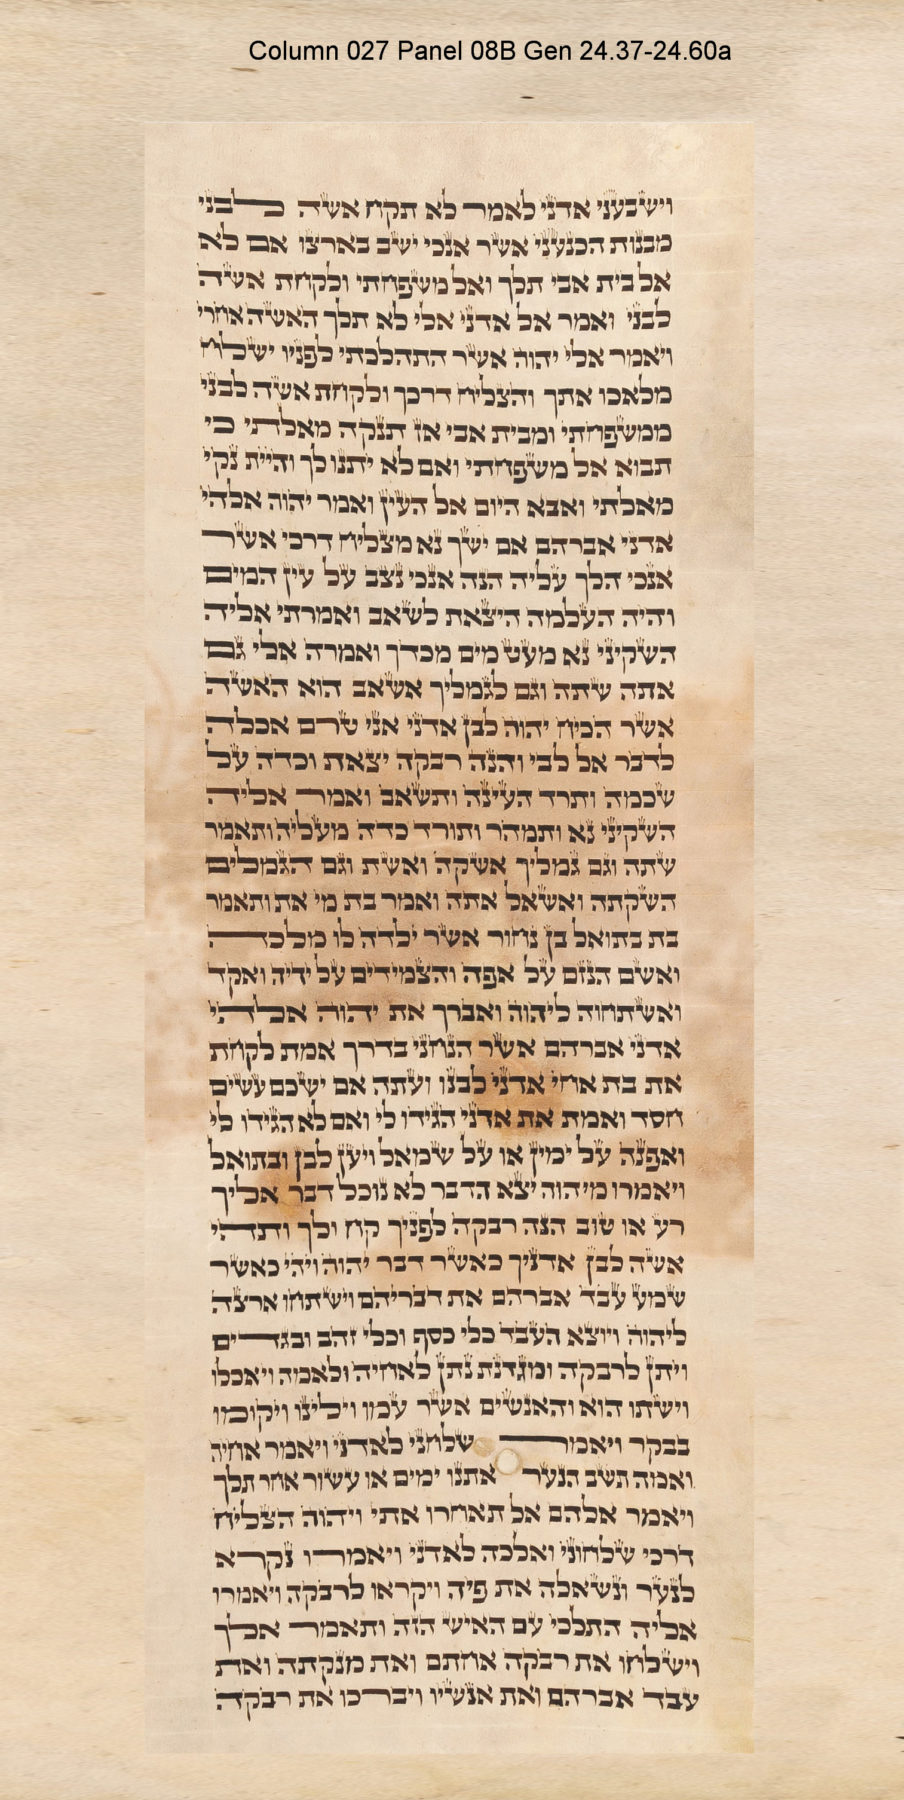 Column 027 Panel 08B Gen 24.37-24.60a
וישבעני אדני לאמר לא תקח אשה לבני
מבנות הכנעני אשר אנכי ישב בארצו אם לא
אל בית אבי תלך ואל משפחתי ולקחת אשה
לבני ואמר אל אדני אלי לא תלך האשה אחרי
ויאמר אלי יהוה אשר התהלכתי לפניו ישלח
מלאכו אתך והצליח דרכך ולקחת אשה לבני
ממשפחתי ומבית אבי אז תנקה מאלתי כי
תבוא אל משפחתי ואם לא יתנו לך והיית נקי
מאלתי ואבא היום אל העין ואמר יהוה אלהי
אדני אברהם אם ישך נא מצליח דרכי אשר
אנכי הלך עליה הנה אנכי נצב על עין המים
והיה העלמה היצאת לשאב ואמרתי אליה
השקיני נא מעט מים מכדך ואמרה אלי גם
אתה שתה וגם לגמליך אשאב הוא האשה
אשר הכיח יהוה לבן אדני אני טרם אכלה
לדבר אל לבי והנה רבקה יצאת וכדה על
שכמה ותרד העינה ותשאב ואמר אליה
השקיני נא ותמהר ותורד כדה מעליה ותאמר
שתה וגם גמליך אשקה ואשת וגם הגמלים
השקתה ואשאל אתה ואמר בת מי את ותאמר
בת בתואל בן נחור אשר ילדה לו מלכה
ואשם הנזם על אפה והצמידים על ידיה ואקד
ואשתחוה ליהוה ואברך את יהוה אלהי
אדני אברהם אשר הנחני בדרך אמת לקחת
את בת אחי אדני לבנו ועתה אם ישכם עשים
חסד ואמת את אדני הגידו לי ואם לא הגידו לי
ואפנה על ימין או על שמאל ויען לבן ובתואל
ויאמרו מיהוה יצא הדבר לא נוכל דבר אליך
רע או טוב הנה רבקה לפניך קח ולך ותהי
אשה לבן אדניך כאשר דבר יהוה ויהי כאשר
שמע עבד אברהם את דבריהם וישתחו ארצה
ליהוה ויוצא העבד כלי כסף וכלי זהב ובגדים
ויתן לרבקה ומגדנת נתן לאחיה ולאמה ויאכלו
וישתו הוא והאנשים אשר עמו וילינו ויקומו
בבקר ויאמר שלחני לאדני ויאמר אחיה
ואמה תשב הנער אתנו ימים או עשור אחר תלך
ויאמר אלהם אל תאחרו אתי ויהוה הצליח
דרכי שלחוני ואלכה לאדני ויאמרו נקרא
לנער ונשאלה את פיה ויקראו לרבקה ויאמרו
אליה התלכי עם האיש הזה ותאמר אלך
וישלחו את רבקה אחתם ואת מנקתה ואת
עבד אברהם ואת אנשיו ויברכו את רבקה